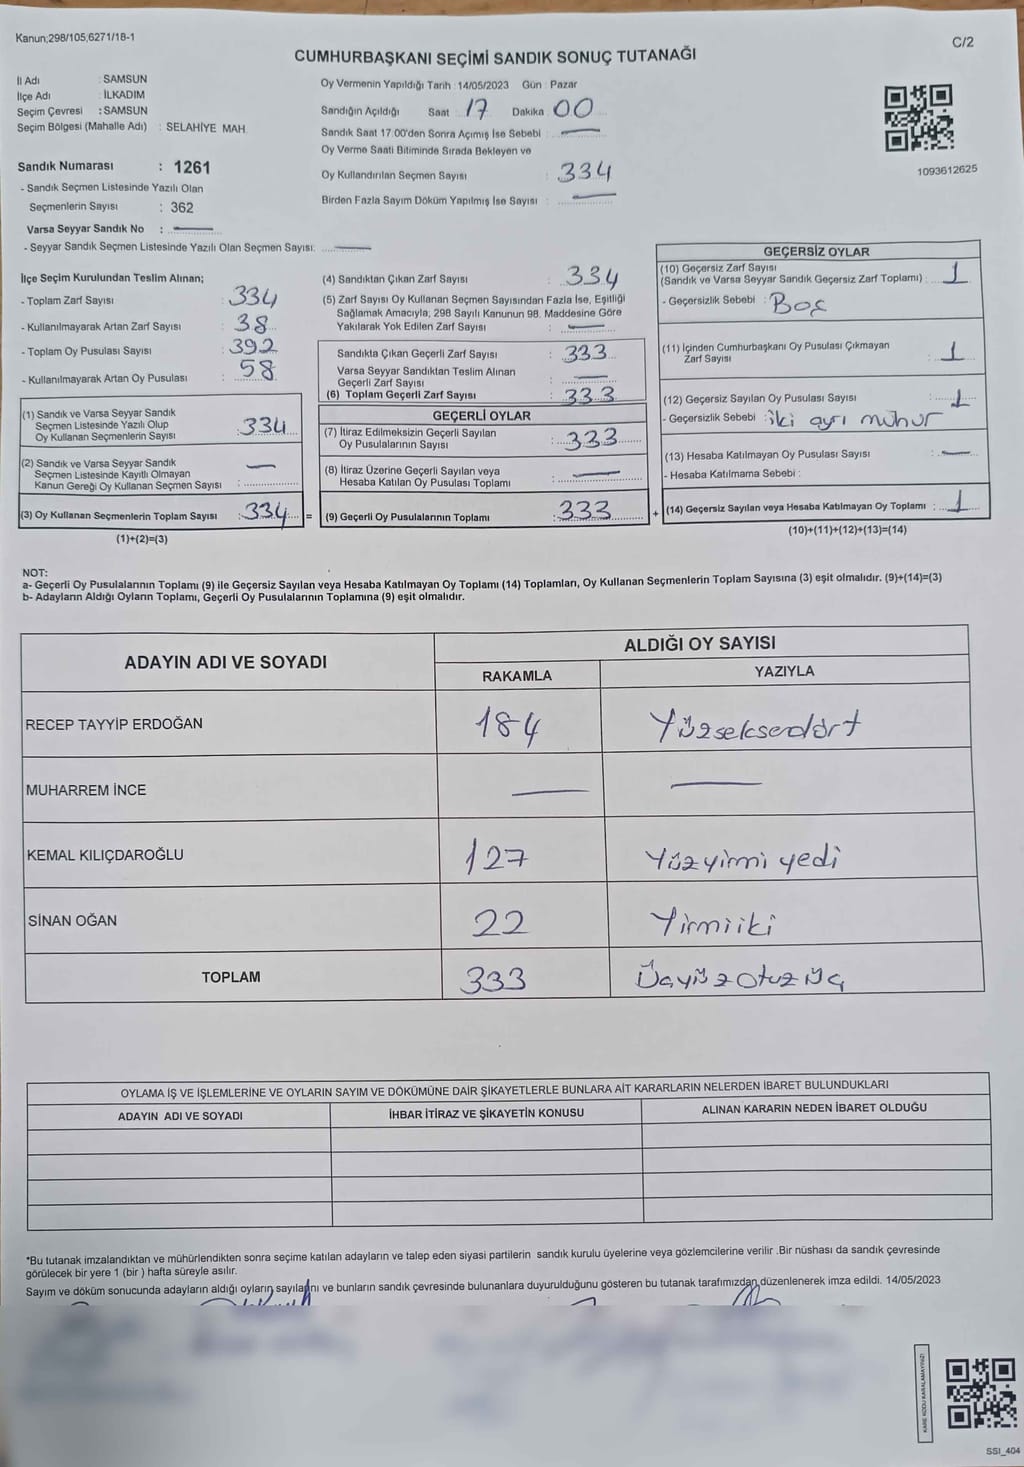 Kanun;298/105,6271/18-1
C/2
CUMHURBAŞKANI SEÇİMİ SANDIK SONUÇ TUTANAĞI
İl Adı : SAMSUN
İlçe Adı : İLKADIM
Seçim Çevresi : SAMSUN
Seçim Bölgesi (Mahalle Adı) : SELAHİYE MAH.
Sandık Numarası : 1261
- Sandık Seçmen Listesinde Yazılı Olan
Seçmenlerin Sayısı : 362
Varsa Seyyar Sandık No : —
- Seyyar Sandık Seçmen Listesinde Yazılı Olan Seçmen Sayısı: —
Oy Vermenin Yapıldığı Tarih : 14/05/2023 Gün : Pazar
Sandığın Açıldığı Saat 17 Dakika 00
Sandık Saat 17.00'den Sonra Açımış İse Sebebi : —
Oy Verme Saati Bitiminde Sırada Bekleyen ve
Oy Kullandırılan Seçmen Sayısı : 334
Birden Fazla Sayım Döküm Yapılmış İse Sayısı : —
1093612625
İlçe Seçim Kurulundan Teslim Alınan;
- Toplam Zarf Sayısı : 334
- Kullanılmayarak Artan Zarf Sayısı : 38
- Toplam Oy Pusulası Sayısı : 392
- Kullanılmayarak Artan Oy Pusulası : 58
(1) Sandık ve Varsa Seyyar Sandık
Seçmen Listesinde Yazılı Olup
Oy Kullanan Seçmenlerin Sayısı : 334
(2) Sandık ve Varsa Seyyar Sandık
Seçmen Listesinde Kayıtlı Olmayan
Kanun Gereği Oy Kullanan Seçmen Sayısı : —
(3) Oy Kullanan Seçmenlerin Toplam Sayısı : 334 =
(1)+(2)=(3)
(4) Sandıktan Çıkan Zarf Sayısı : 334
(5) Zarf Sayısı Oy Kullanan Seçmen Sayısından Fazla İse, Eşitliği
Sağlamak Amacıyla, 298 Sayılı Kanunun 98. Maddesine Göre
Yakılarak Yok Edilen Zarf Sayısı : —
Sandıkta Çıkan Geçerli Zarf Sayısı : 333
Varsa Seyyar Sandıktan Teslim Alınan
Geçerli Zarf Sayısı : —
(6) Toplam Geçerli Zarf Sayısı : 333
GEÇERLİ OYLAR
(7) İtiraz Edilmeksizin Geçerli Sayılan
Oy Pusulalarının Sayısı : 333
(8) İtiraz Üzerine Geçerli Sayılan veya
Hesaba Katılan Oy Pusulası Toplamı : —
(9) Geçerli Oy Pusulalarının Toplamı : 333 +
GEÇERSİZ OYLAR
(10) Geçersiz Zarf Sayısı
(Sandık ve Varsa Seyyar Sandık Geçersiz Zarf Toplamı) : 1
- Geçersizlik Sebebi : Boş
(11) İçinden Cumhurbaşkanı Oy Pusulası Çıkmayan
Zarf Sayısı : 1
(12) Geçersiz Sayılan Oy Pusulası Sayısı : 1
- Geçersizlik Sebebi : iki ayrı mühür
(13) Hesaba Katılmayan Oy Pusulası Sayısı : —
- Hesaba Katılmama Sebebi :
(14) Geçersiz Sayılan veya Hesaba Katılmayan Oy Toplamı : 1
(10)+(11)+(12)+(13)=(14)
NOT:
a- Geçerli Oy Pusulalarının Toplamı (9) ile Geçersiz Sayılan veya Hesaba Katılmayan Oy Toplamı (14) Toplamları, Oy Kullanan Seçmenlerin Toplam Sayısına (3) eşit olmalıdır. (9)+(14)=(3)
b- Adayların Aldığı Oyların Toplamı, Geçerli Oy Pusulalarının Toplamına (9) eşit olmalıdır.
ADAYIN ADI VE SOYADI
ALDIĞI OY SAYISI
RAKAMLA YAZIYLA
RECEP TAYYİP ERDOĞAN 184 Yüzseksendört
MUHARREM İNCE — —
KEMAL KILIÇDAROĞLU 127 Yüzyirmi yedi
SİNAN OĞAN 22 Yirmiiki
TOPLAM 333 Üçyüzotuzüç
OYLAMA İŞ VE İŞLEMLERİNE VE OYLARIN SAYIM VE DÖKÜMÜNE DAİR ŞİKAYETLERLE BUNLARA AİT KARARLARIN NELERDEN İBARET BULUNDUKLARI
ADAYIN ADI VE SOYADI İHBAR İTİRAZ VE ŞİKAYETİN KONUSU ALINAN KARARIN NEDEN İBARET OLDUĞU
*Bu tutanak imzalandıktan ve mühürlendikten sonra seçime katılan adayların ve talep eden siyasi partilerin sandık kurulu üyelerine veya gözlemcilerine verilir .Bir nüshası da sandık çevresinde
görülecek bir yere 1 (bir ) hafta süreyle asılır.
Sayım ve döküm sonucunda adayların aldığı oyların sayılarını ve bunların sandık çevresinde bulunanlara duyurulduğunu gösteren bu tutanak tarafımızdan düzenlenerek imza edildi. 14/05/2023
KARE KODU KARALAMAYINIZ!
SSI_404